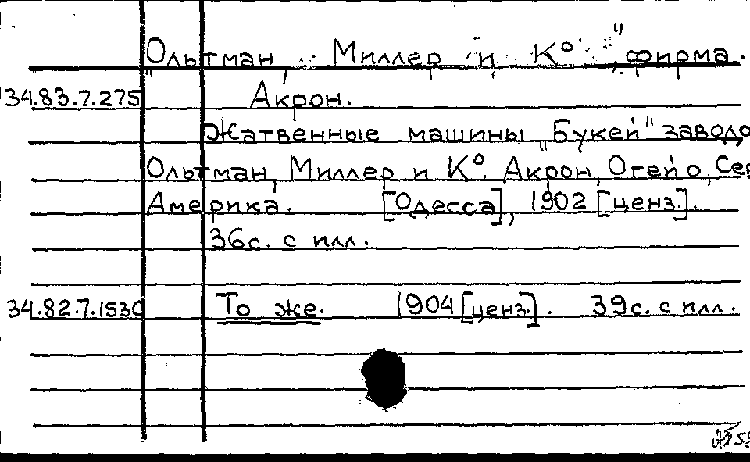 "Ольтман, Миллер и К°", фирма.
34.83.7.275 Акрон.
Жатвенные машины "Букей" заводо
Ольтман, Миллер и К°. Акрон, Огайо, Сев
Америка. [Одесса], 1902 [ценз.].
36с. с илл.
34.82.7.1530 То же. 1904 [ценз.]. 39с. с илл.